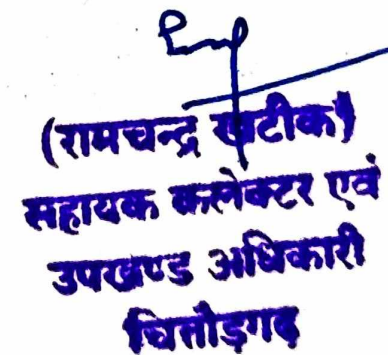 (रामचन्द्र खटीक)
सहायक कलेक्टर एवं
उपखण्ड अधिकारी
चित्तौड़गढ़